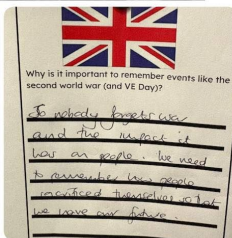 Why is it important to remember events like the
second world war (and VE Day)?
So nobody forgets war
and the impact it
has on people. We need
to remember how people
sacrificed themselves so that
we have our future.